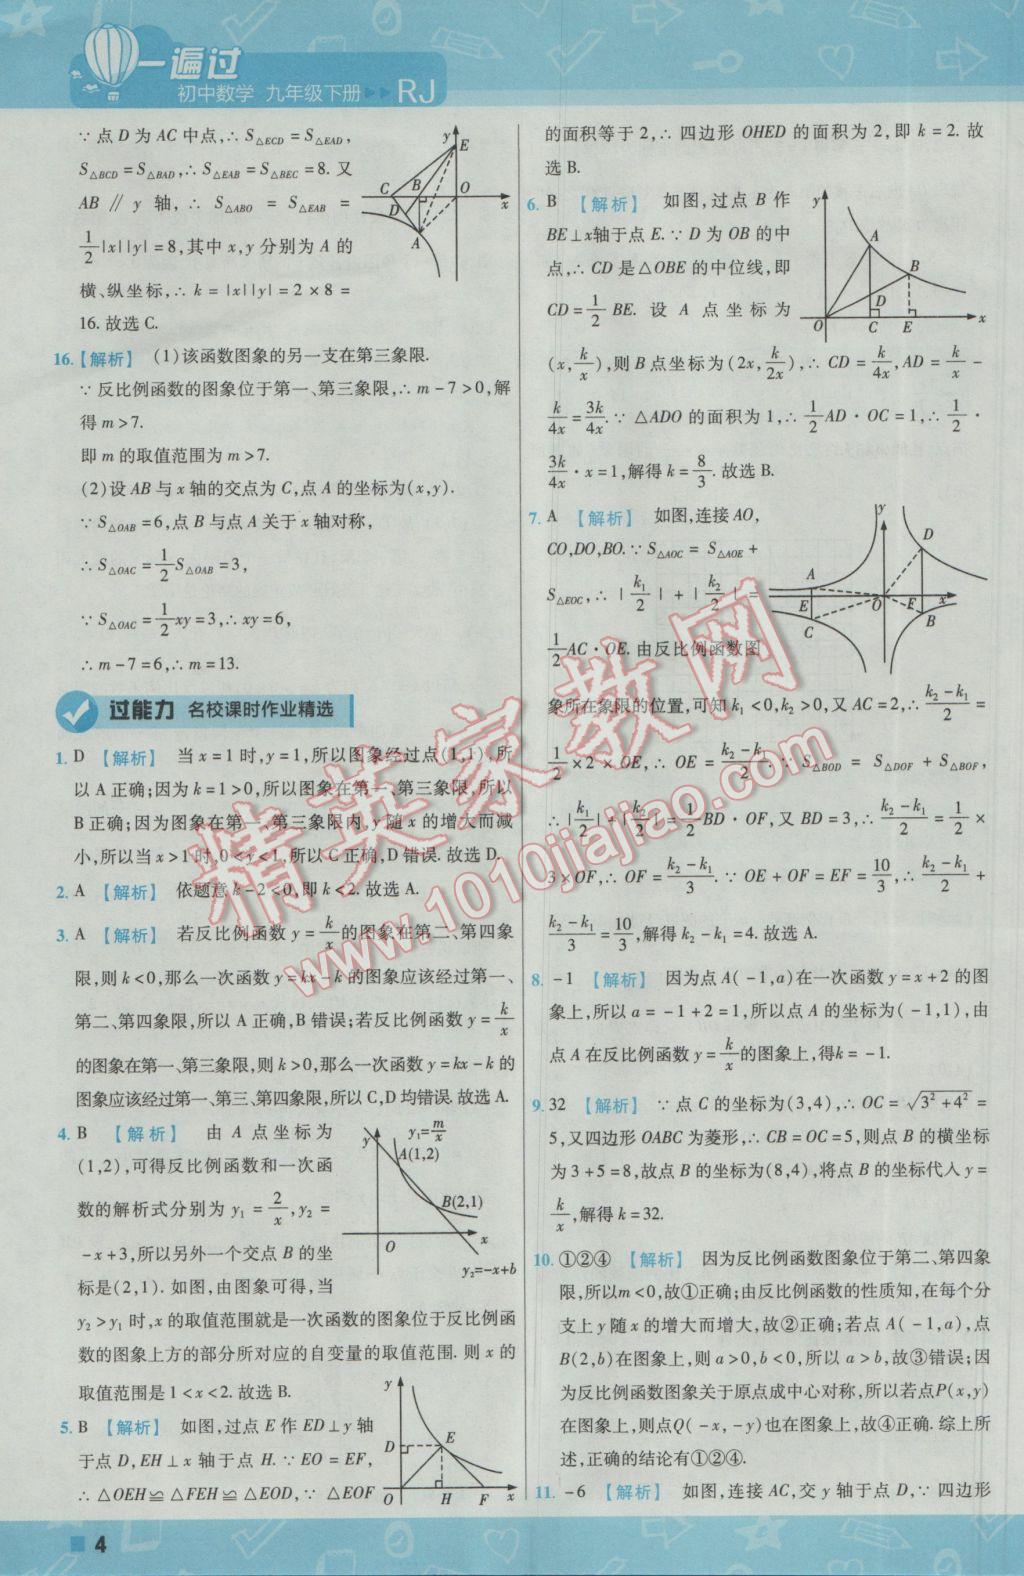 一遍过
初中数学 九年级下册 RJ
∵点 D 为 AC 中点,∴S△ECD = S△EAD,
S△BCD = S△BAD,∴S△EAB = S△BEC = 8. 又
AB∥y 轴,∴S△ABO = S△EAB =
1/2|x||y| = 8,其中 x,y 分别为 A 的
横、纵坐标,∴k = |x||y| = 2×8 =
16. 故选 C.
16.【解析】 (1)该函数图象的另一支在第三象限.
∵反比例函数的图象位于第一、第三象限,∴m-7>0,解
得 m>7.
即 m 的取值范围为 m>7.
(2)设 AB 与 x 轴的交点为 C,点 A 的坐标为(x,y).
∵S△OAB = 6,点 B 与点 A 关于 x 轴对称,
∴S△OAC = 1/2 S△OAB = 3,
∵S△OAC = 1/2 xy = 3,∴xy = 6,
∴m-7 = 6,∴m = 13.
过能力 名校课时作业精选
1. D 【解析】 当 x = 1 时,y = 1,所以图象经过点(1,1),所
以 A 正确;因为 k = 1>0,所以图象在第一、第三象限,所以
B 正确;因为图象在第一、第三象限内,y 随 x 的增大而减
小,所以当 x>1 时,0<y<1,所以 C 正确,D 错误. 故选 D.
2. A 【解析】 依题意 k-2<0,即 k<2. 故选 A.
3. A 【解析】 若反比例函数 y = k/x 的图象在第二、第四象
限,则 k<0,那么一次函数 y = kx-k 的图象应该经过第一、
第二、第四象限,所以 A 正确,B 错误;若反比例函数 y = k/x
的图象在第一、第三象限,则 k>0,那么一次函数 y = kx-k 的
图象应该经过第一、第三、第四象限,所以 C,D 均错误. 故选 A.
4. B 【解析】 由 A 点坐标为
(1,2),可得反比例函数和一次函
数的解析式分别为 y₁ = 2/x,y₂ =
-x+3,所以另外一个交点 B 的坐
标是(2,1). 如图,由图象可得,当
y₂>y₁ 时,x 的取值范围就是一次函数的图象位于反比例函
数的图象上方的部分所对应的自变量的取值范围. 则 x 的
取值范围是 1<x<2. 故选 B.
y₁=m/x
A(1,2)
B(2,1)
O x
y₂=-x+b
5. B 【解析】 如图,过点 E 作 ED⊥y 轴
于点 D,EH⊥x 轴于点 H. ∵EO = EF,
∴△OEH≌△FEH≌△EOD,∵△EOF
y
D E
O H F x
的面积等于 2,∴四边形 OHED 的面积为 2,即 k = 2. 故
选 B.
6. B 【解析】 如图,过点 B 作
BE⊥x轴于点 E. ∵D 为 OB 的中
点,∴CD 是△OBE 的中位线,即
CD = 1/2 BE. 设 A 点坐标为
(x, k/x),则 B 点坐标为(2x, k/2x),∴CD = k/4x,AD = k/x -
k/4x = 3k/4x. ∵△ADO 的面积为 1,∴1/2 AD·OC = 1,∴1/2·
3k/4x·x = 1,解得 k = 8/3. 故选 B.
7. A 【解析】 如图,连接 AO,
CO,DO,BO. ∵S△AOC = S△AOE +
S△EOC,∴|k₁/2| + |k₂/2| =
1/2 AC·OE. 由反比例函数图
象所在象限的位置,可知 k₁<0,k₂>0,又 AC = 2,∴(k₂-k₁)/2 =
1/2×2×OE,∴OE = (k₂-k₁)/2. ∵S△BOD = S△DOF + S△BOF,
∴|k₁/2| + |k₂/2| = 1/2 BD·OF,又 BD = 3,∴(k₂-k₁)/2 = 1/2×
3×OF,∴OF = (k₂-k₁)/3. ∵OE + OF = EF = 10/3,∴(k₂-k₁)/2 +
(k₂-k₁)/3 = 10/3,解得 k₂-k₁ = 4. 故选 A.
8. -1 【解析】 因为点 A(-1,a)在一次函数 y = x+2 的图
象上,所以 a = -1+2 = 1,所以点 A 的坐标为(-1,1),由
点 A 在反比例函数 y = k/x 的图象上,得k = -1.
9. 32 【解析】 ∵点 C 的坐标为(3,4),∴OC = √(3²+4²) =
5,又四边形 OABC 为菱形,∴CB = OC = 5,则点 B 的横坐标
为 3+5 = 8,故点 B 的坐标为(8,4),将点 B 的坐标代入 y =
k/x,解得 k = 32.
10. ①②④ 【解析】 因为反比例函数图象位于第二、第四象
限,所以m<0,故①正确;由反比例函数的性质知,在每个分
支上 y 随 x 的增大而增大,故②正确;若点 A(-1,a),点
B(2,b)在图象上,则 a>0,b<0,所以 a>b,故③错误;因
为反比例函数图象关于原点成中心对称,所以若点P(x,y)
在图象上,则点Q(-x,-y)也在图象上,故④正确. 综上所
述,正确的结论有①②④.
11. -6 【解析】 如图,连接 AC,交 y 轴于点 D,∵四边形
4
精英家教网
www.1010jiajiao.com